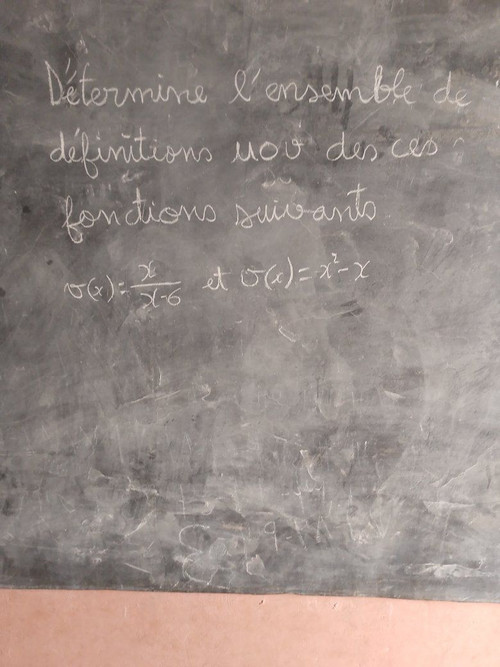 Détermine l'ensemble de
définitions uov des ces
fonctions suivants
v(x) = x/(x-6) et v(x) = x² - x